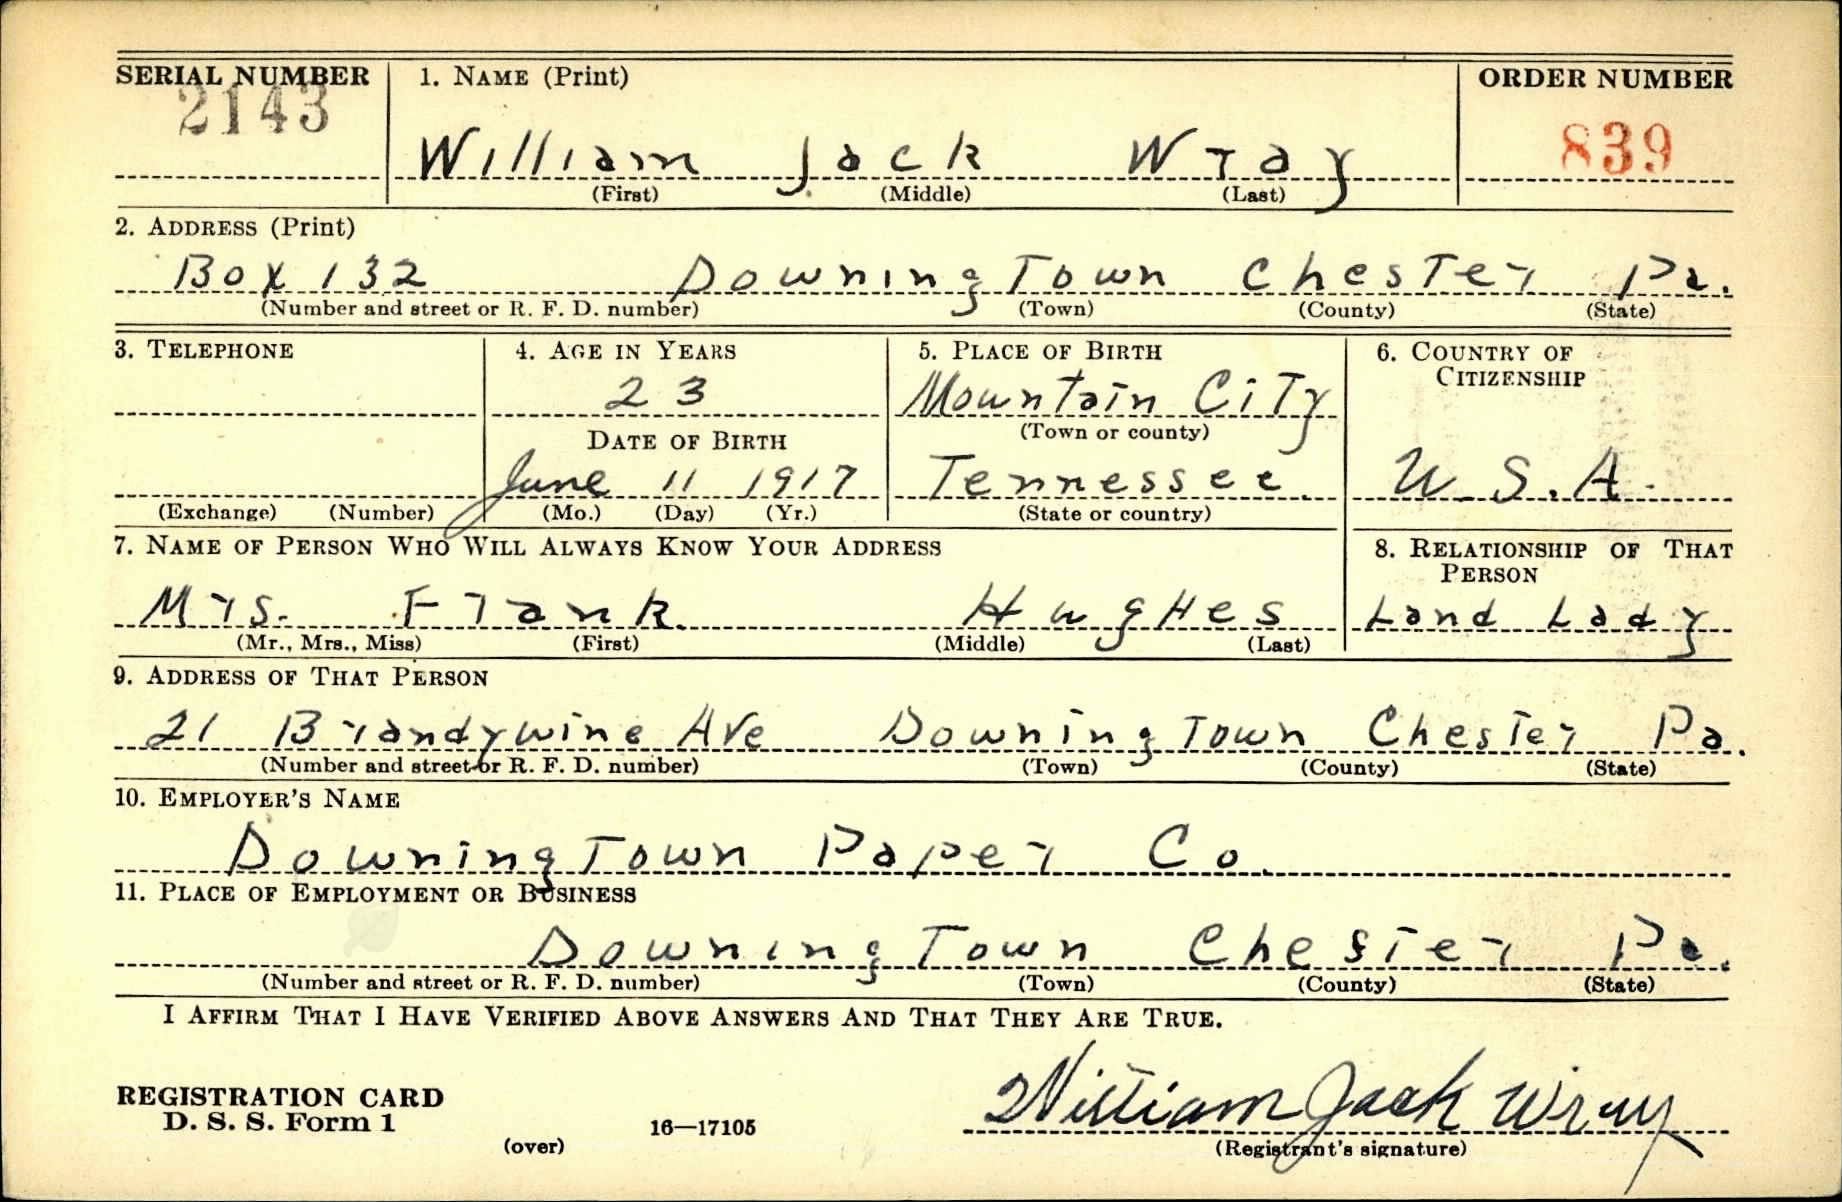 SERIAL NUMBER 1. NAME (Print) ORDER NUMBER
2143 839
William Jack Wray
(First) (Middle) (Last)
2. ADDRESS (Print)
Box 132 DowningTown Chester Pa.
(Number and street or R. F. D. number) (Town) (County) (State)
3. TELEPHONE 4. AGE IN YEARS 5. PLACE OF BIRTH 6. COUNTRY OF
CITIZENSHIP
23 Mountain City
(Town or county)
DATE OF BIRTH
June 11 1917 Tennessee. U.S.A.
(Exchange) (Number) (Mo.) (Day) (Yr.) (State or country)
7. NAME OF PERSON WHO WILL ALWAYS KNOW YOUR ADDRESS 8. RELATIONSHIP OF THAT
PERSON
Mrs. Frank Hughes Land Lady
(Mr., Mrs., Miss) (First) (Middle) (Last)
9. ADDRESS OF THAT PERSON
21 Brandywine Ave DowningTown Chester Pa.
(Number and street or R. F. D. number) (Town) (County) (State)
10. EMPLOYER'S NAME
DowningTown Paper Co.
11. PLACE OF EMPLOYMENT OR BUSINESS
DowningTown Chester Pa.
(Number and street or R. F. D. number) (Town) (County) (State)
I AFFIRM THAT I HAVE VERIFIED ABOVE ANSWERS AND THAT THEY ARE TRUE.
REGISTRATION CARD
D. S. S. Form 1 William Jack Wray
(over) 16—17105 (Registrant's signature)